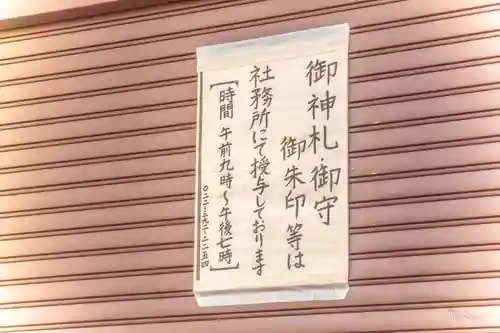 御神札・御守
御朱印等は
社務所にて授与しております
[時間 午前九時〜午後七時]
〇二二-二九二-二二五四